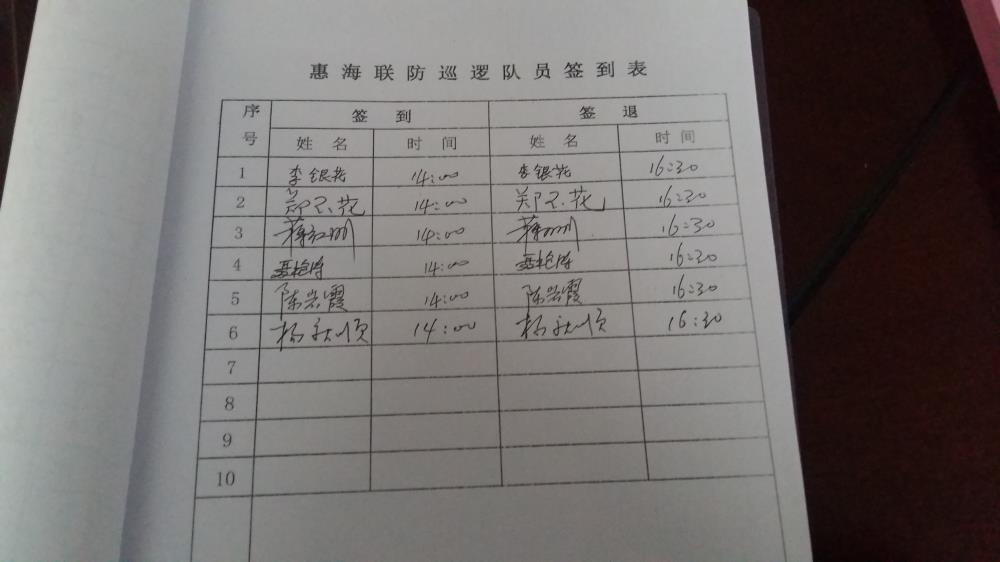 惠海联防巡逻队员签到表
序号 签到 签退
姓名 时间 姓名 时间
1 李银花 14:00 李银花 16:30
2 郑 花 14:00 郑 花 16:30
3 蒋 14:00 蒋 16:30
4 14:00 16:30
5 陈岩霞 14:00 陈岩霞 16:30
6 杨秋顺 14:00 杨秋顺 16:30
7
8
9
10